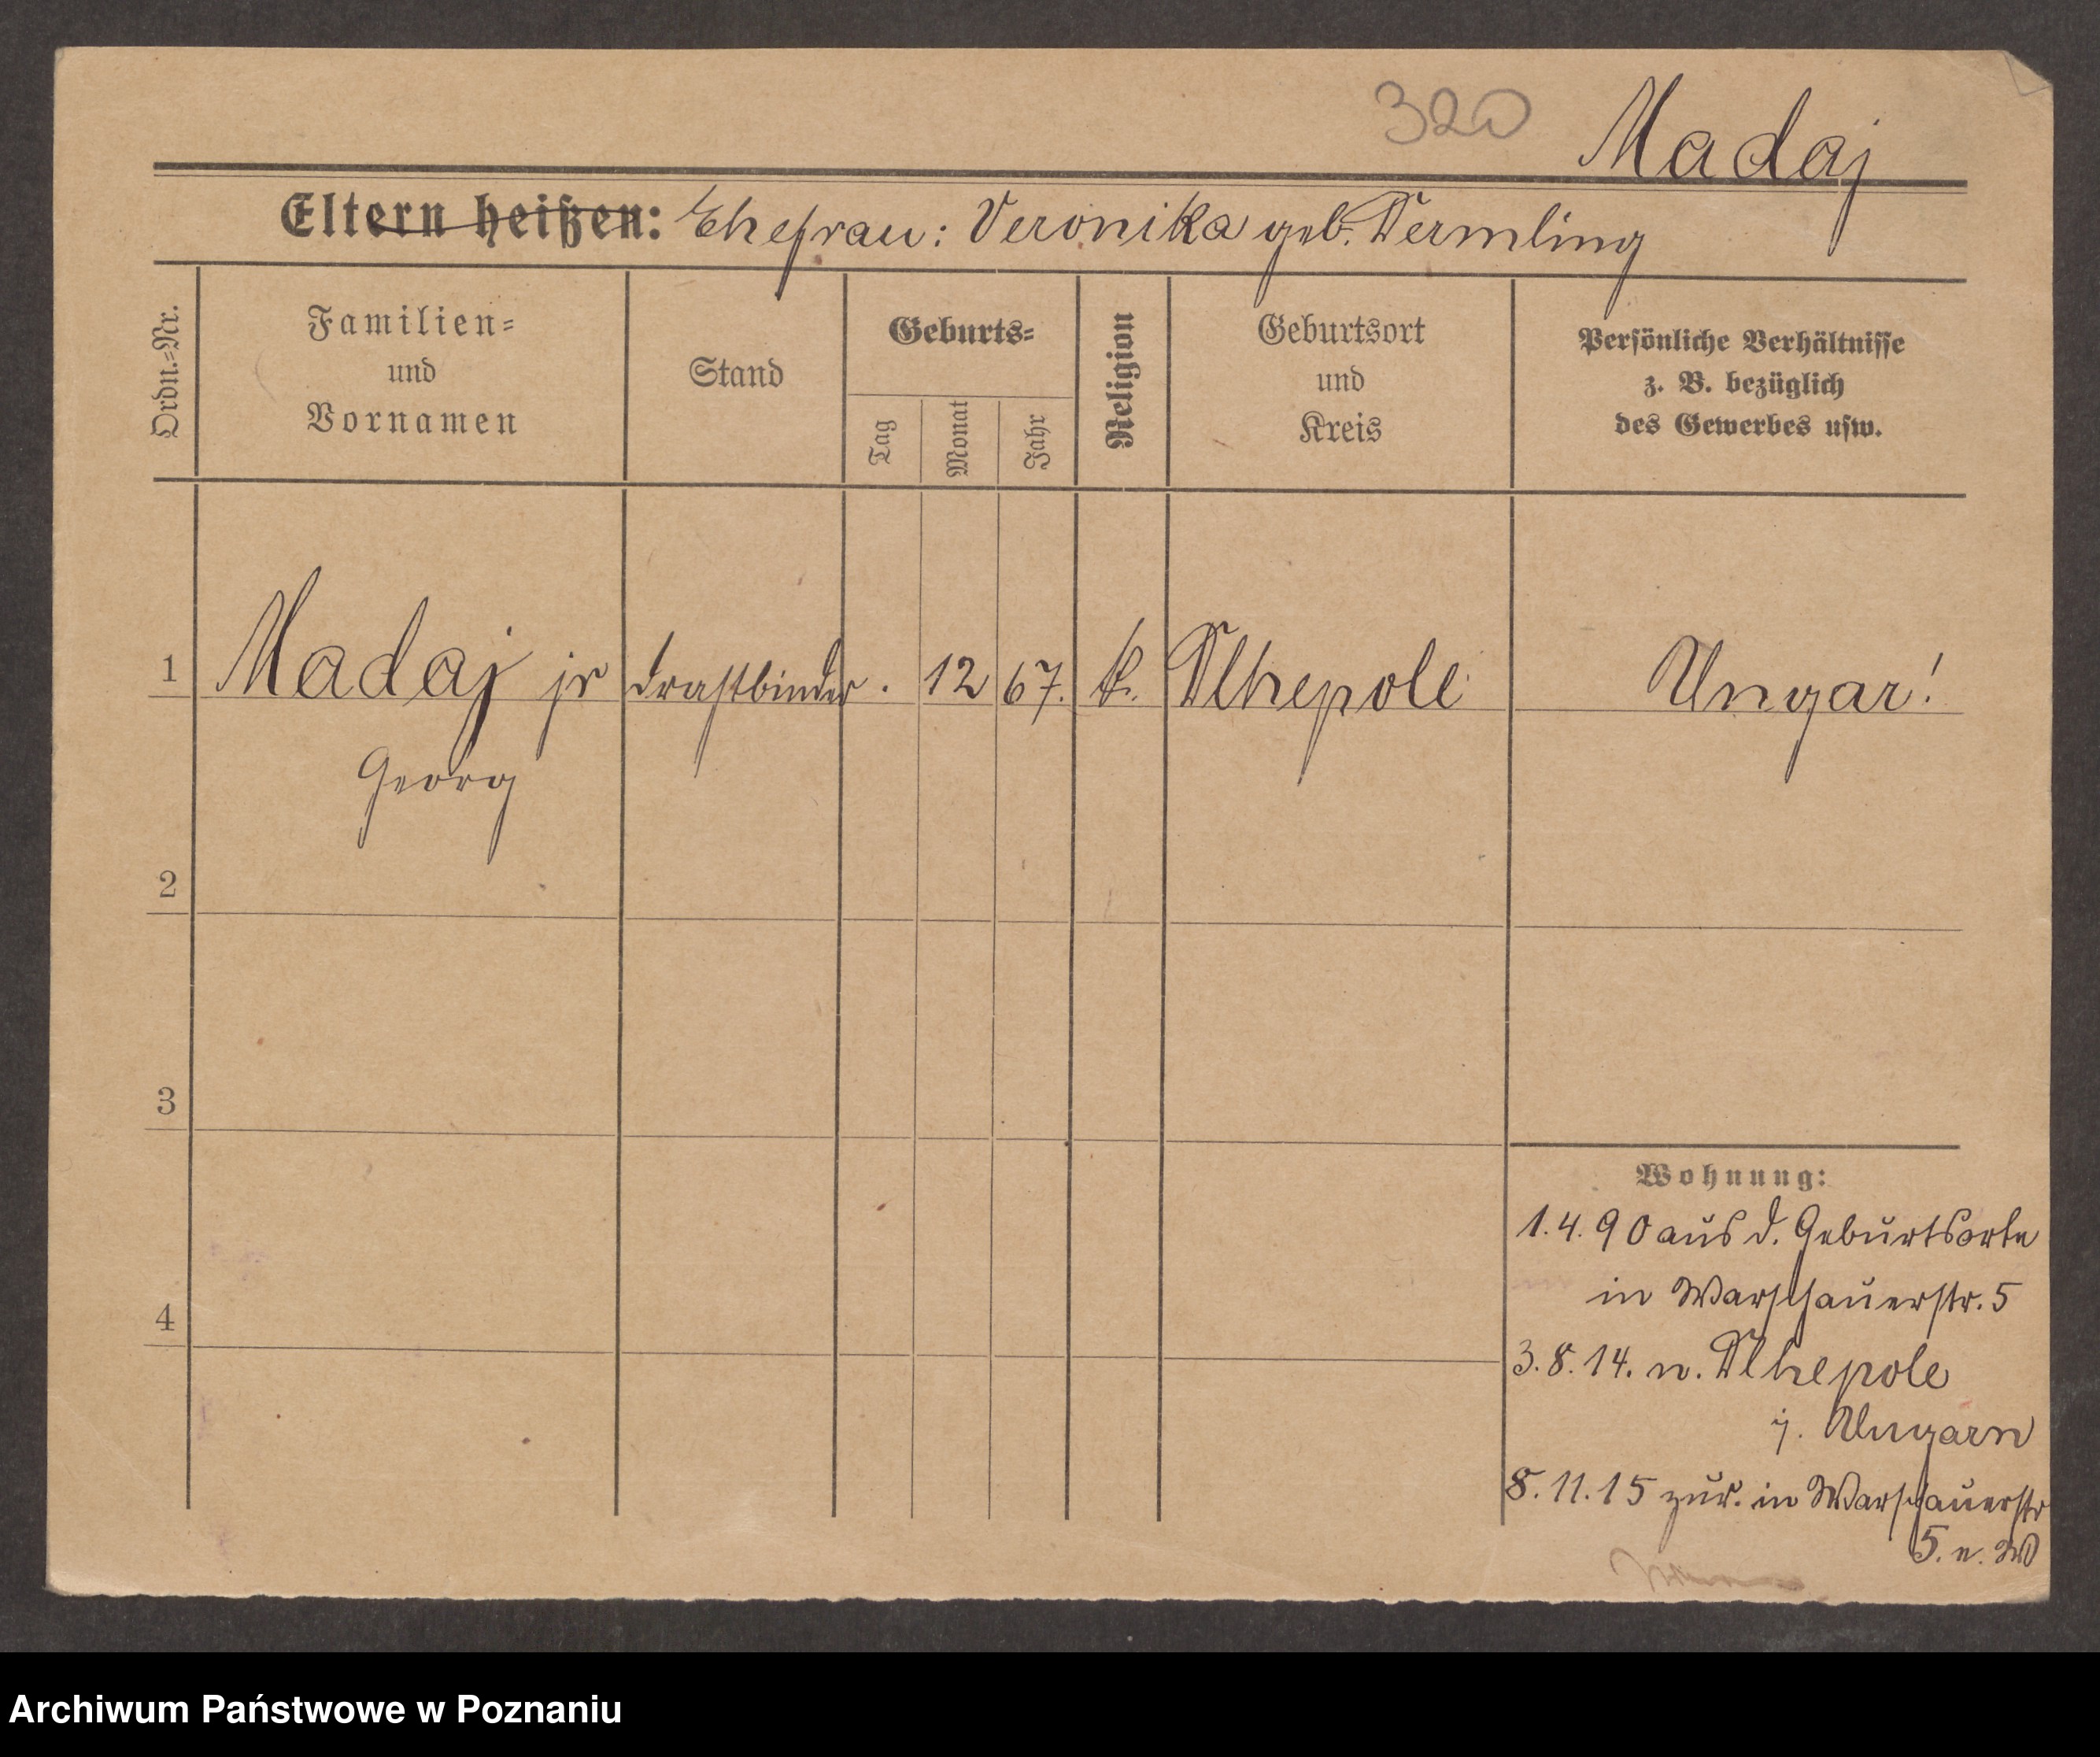 320
Madaj
Eltern heißen: Ehefrau: Veronika geb. Termling
Ordn.=Nr.
Familien=
und
Vornamen
Stand
Geburts=
Tag
Monat
Jahr
Religion
Geburtsort
und
Kreis
Persönliche Verhältnisse
z. B. bezüglich
des Gewerbes usw.
1 Madaj jr Drahtbinder . 12 67. k. Dlhepole Ungar!
Georg
2
3
4
Wohnung:
1.4.90 aus d. Geburtsorte
in Warschauerstr. 5
3.8.14. n. Dlhepole
i. Ungarn
8.11.15 zur. in Warschauerstr
5. n. W
Archiwum Państwowe w Poznaniu